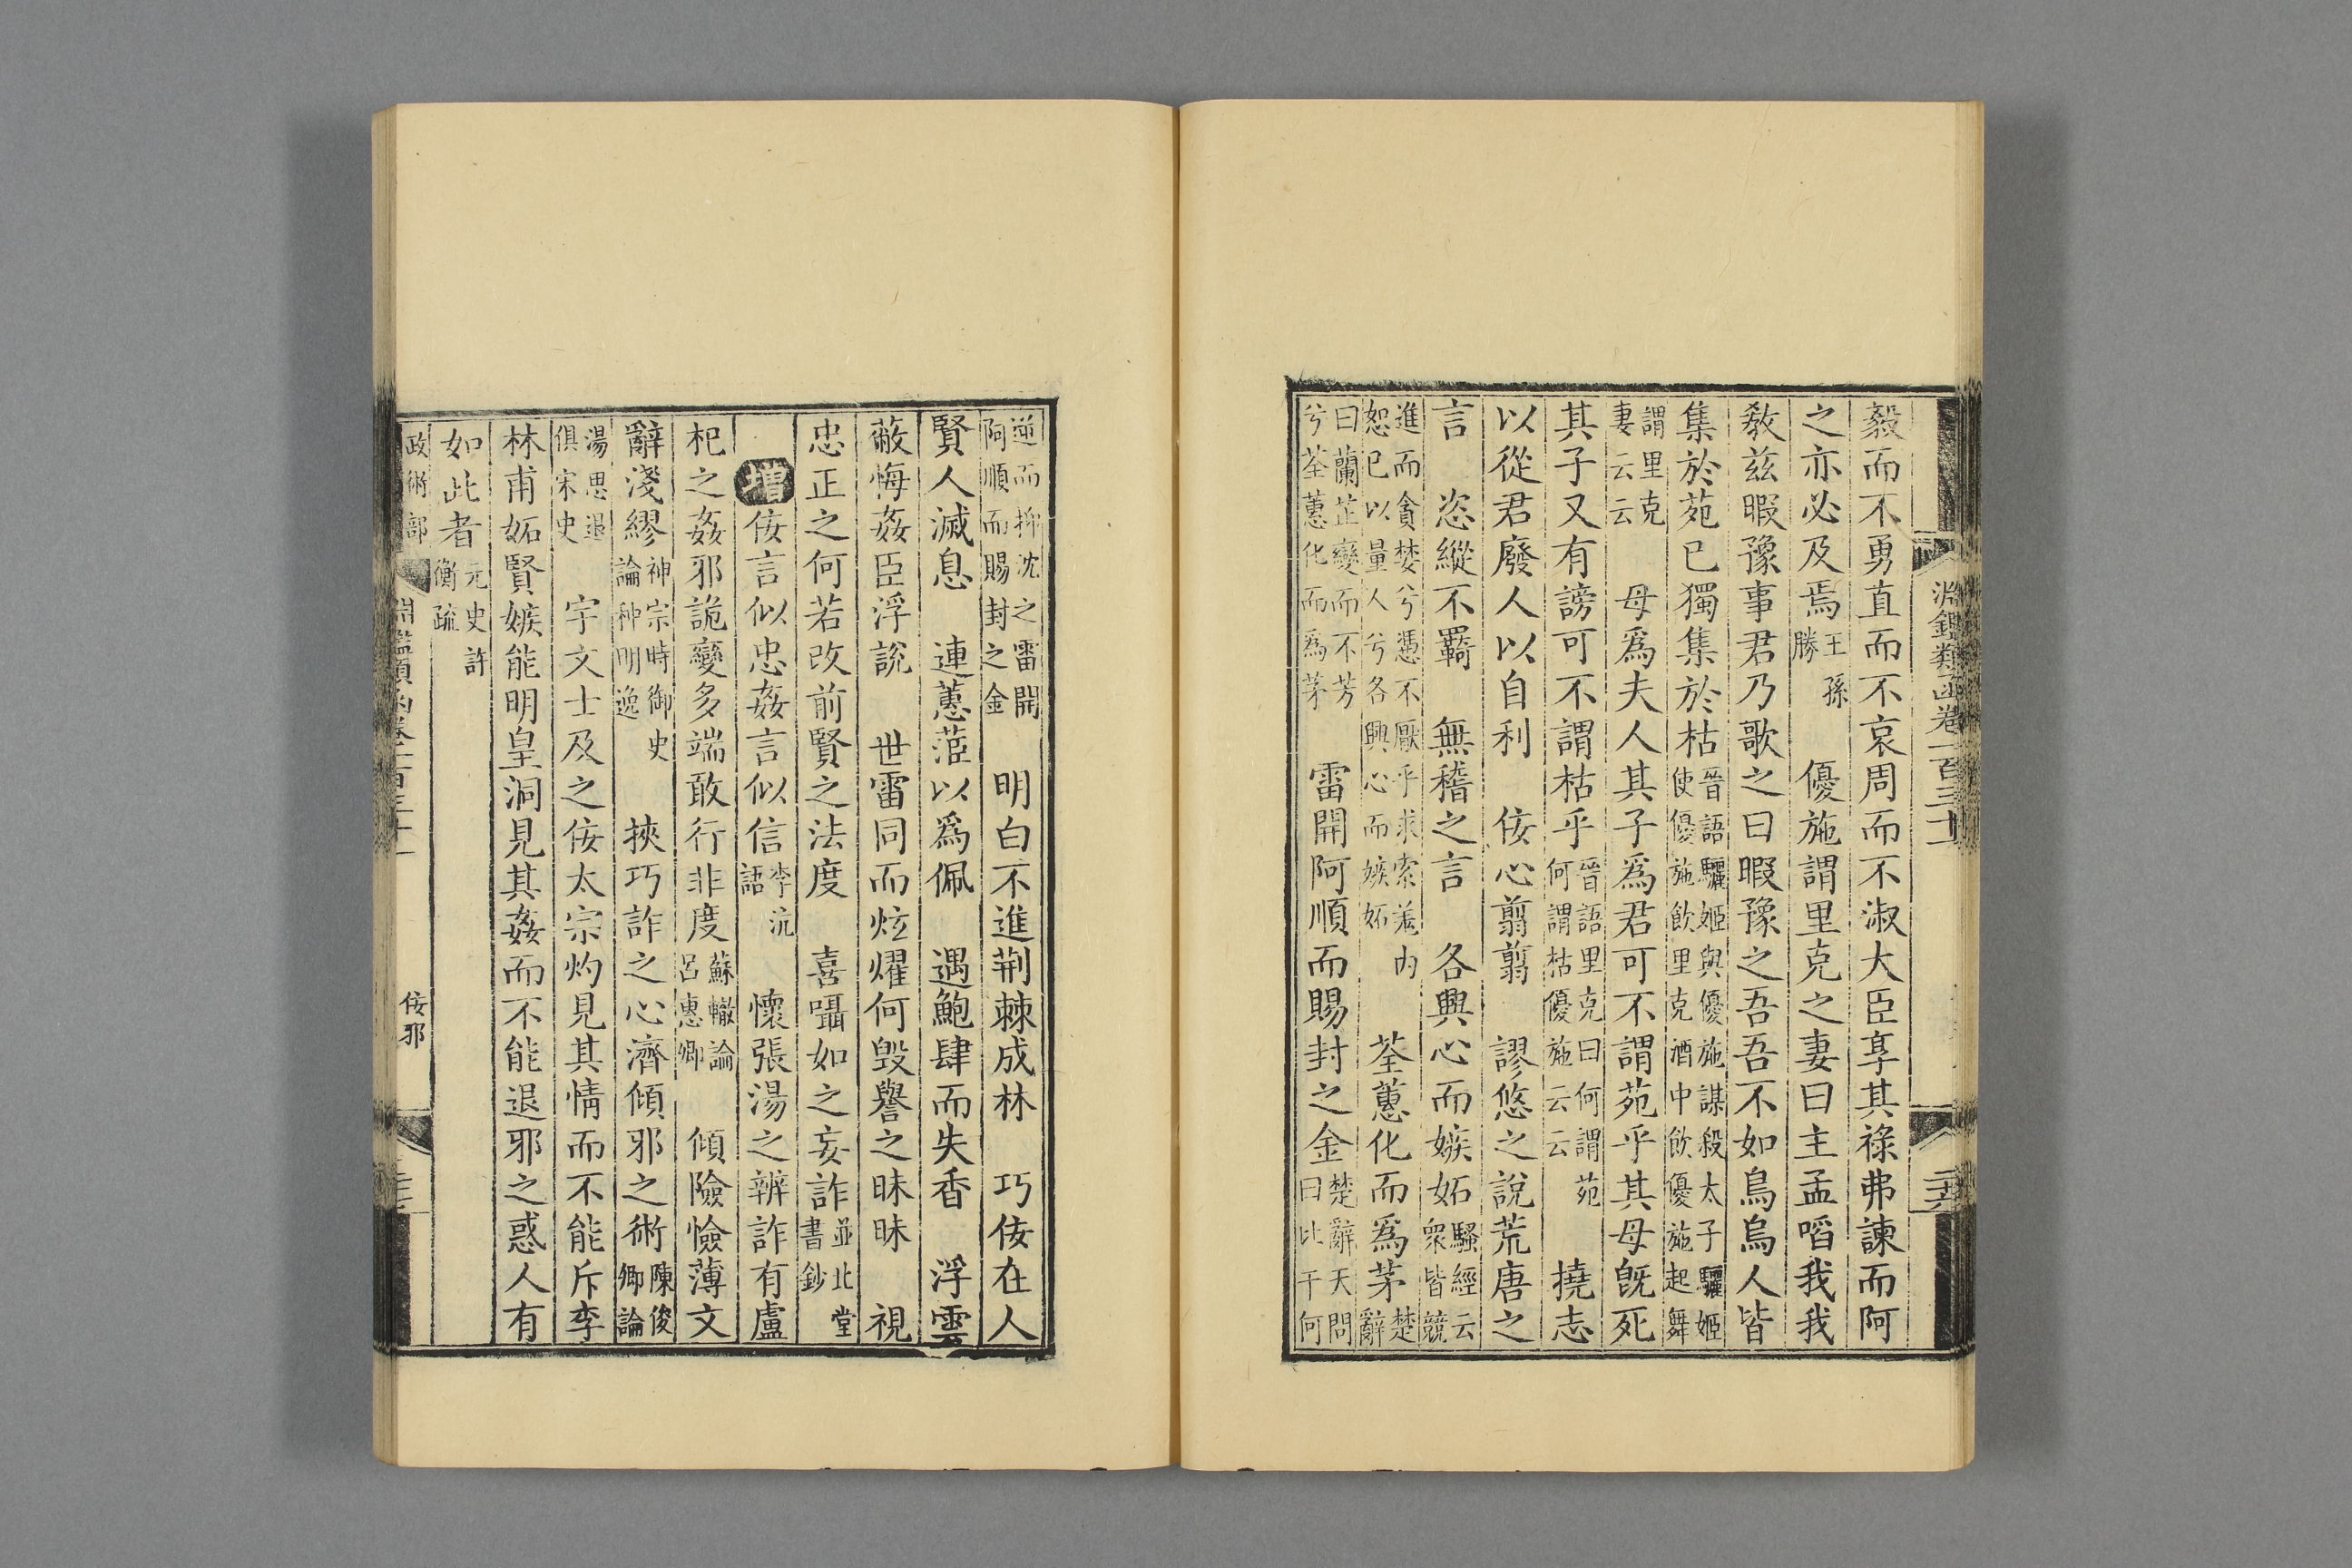 淵鑑類函卷一百三十
毅而不勇直而不哀周而不淑大臣享其祿弗諫而阿
之亦必及焉王孫勝 優施謂里克之妻曰主孟啗我我
敎玆暇豫事君乃歌之曰暇豫之吾吾不如鳥烏人皆
集於苑已獨集於枯晉語驪姬與優施謀殺太子驪姬使優施飮里克酒中飮優施起舞
謂里克妻云云 母爲夫人其子爲君可不謂苑乎其母旣死
其子又有謗可不謂枯乎晉語里克曰何謂苑何謂枯優施云云 撓志
以從君廢人以自利 佞心翦翦 謬悠之說荒唐之
言 恣縱不羈 無稽之言 各興心而嫉妬騷經云衆皆競
進而貪婪兮憑不厭乎求索羌內恕已以量人兮各興心而嫉妬 荃蕙化而爲茅楚辭
曰蘭芷變而不芳兮荃蕙化而爲茅 雷開阿順而賜封之金楚辭天問曰比干何
逆而抑沈之雷開阿順而賜封之金 明白不進荆棘成林 巧佞在人
賢人滅息 連蕙茝以爲佩 遇鮑肆而失香 浮雲
蔽晦姦臣浮說 世雷同而炫燿何毁譽之昧昧 視
忠正之何若改前賢之法度 喜囁如之妄詐並北堂書鈔
增佞言似忠姦言似信李沆語 懷張湯之辨詐有盧
杞之姦邪詭變多端敢行非度蘇轍論呂惠卿 傾險憸薄文
辭淺繆神宗時御史論种明逸 挾巧詐之心濟傾邪之術陳俊卿論
湯思退俱宋史 宇文士及之佞太宗灼見其情而不能斥李
林甫妬賢嫉能明皇洞見其姦而不能退邪之惑人有
如此者元史許衡疏
政術部 淵鑑類函卷一百三十 佞邪